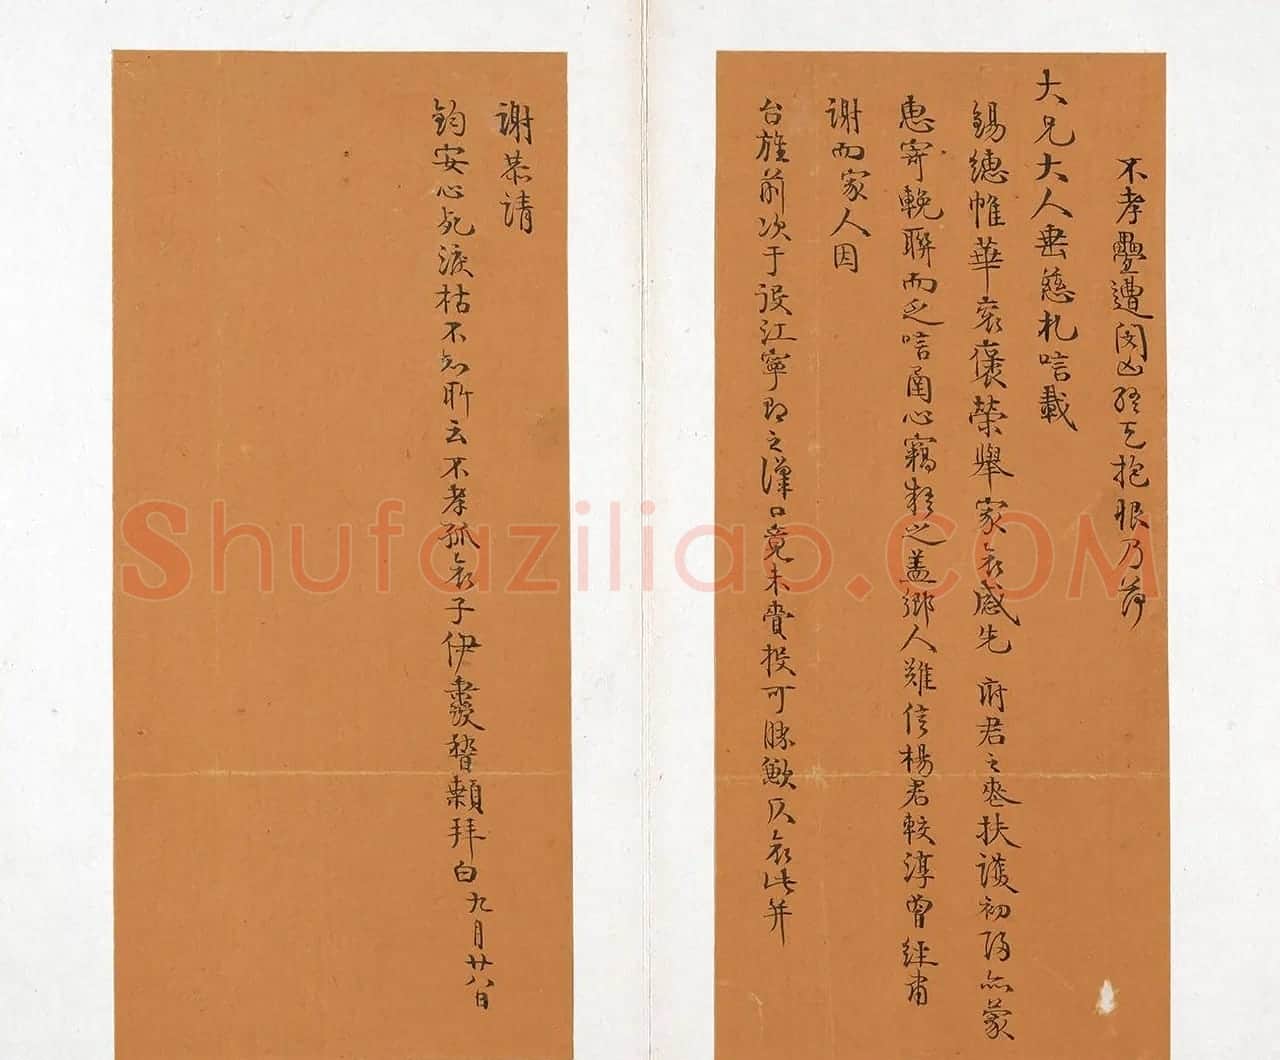 不孝疊遭閔凶終天抱恨乃荷
大兄大人垂慈札唁載
錫繐帷華袞褒榮舉家哀感先 府君之喪扶護初歸亦蒙
惠寄輓聯而乏唁函心竊疑之蓋鄉人難信楊君較淳曾經肅
謝而家人因
台旌前次于役江寧即之漢口竟未賫投可勝歉仄哀此并
謝恭請
鈞安心死淚枯不知所云不孝孤哀子伊 稽顙拜白九月廿八日
Shufaziliao.COM